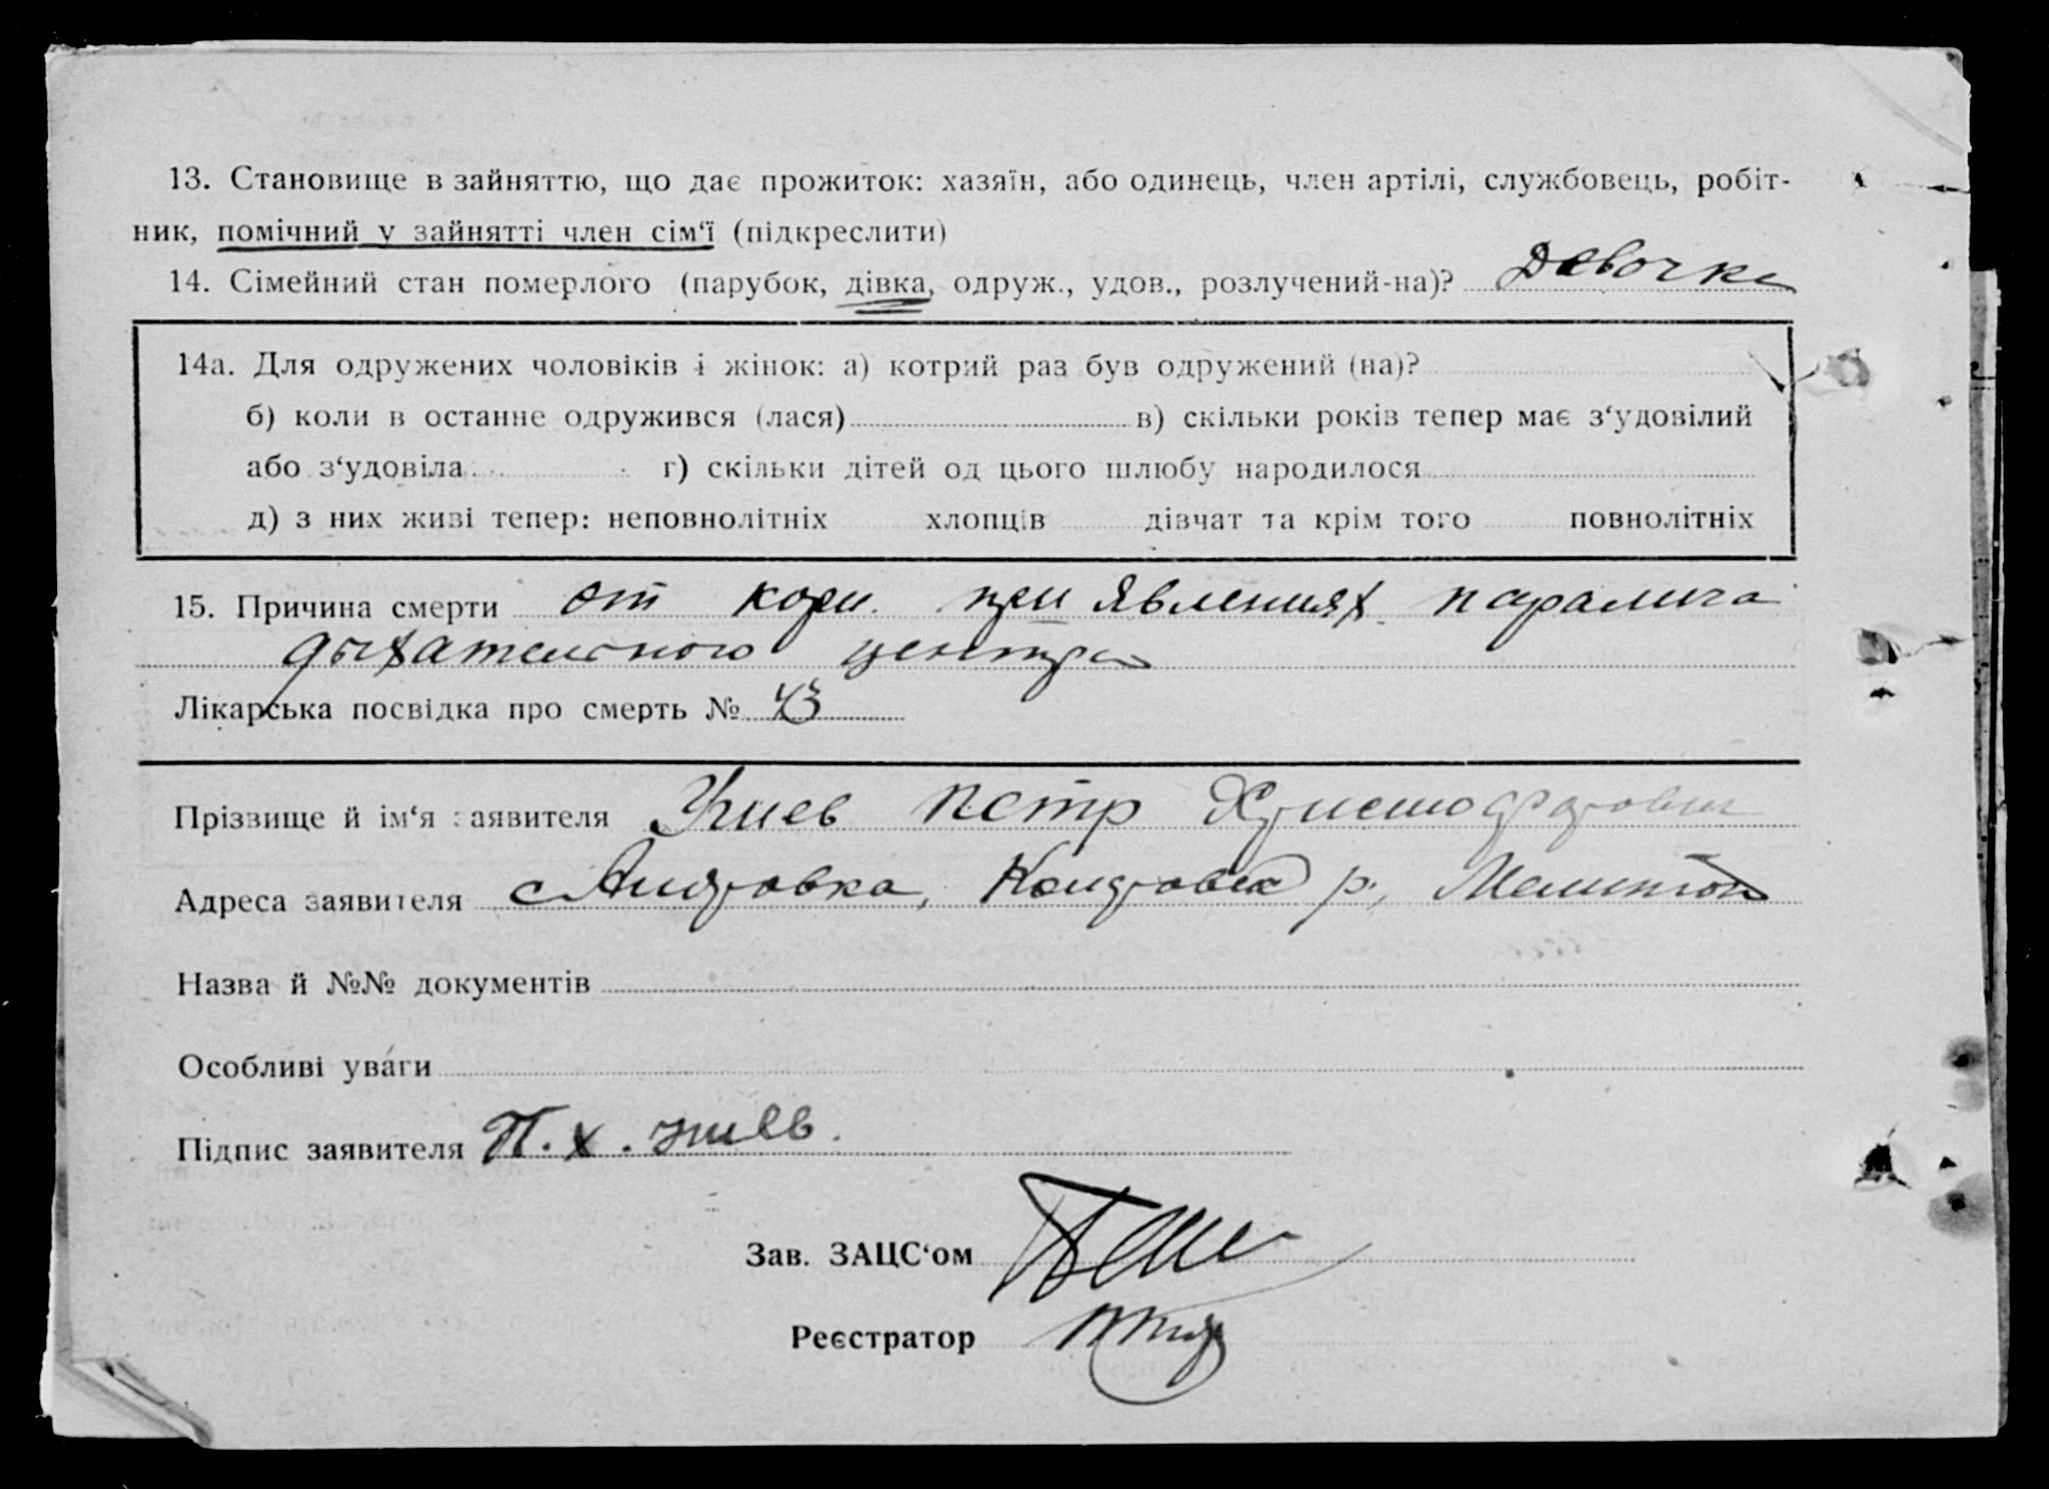 13. Становище в зайняттю, що дає прожиток: хазяїн, або одинець, член артілі, службовець, робіт-
ник, помічний у зайнятті член сім‘ї (підкреслити)
14. Сімейний стан померлого (парубок, дівка, одруж., удов., розлучений-на)? Девочка
14а. Для одружених чоловіків і жінок: а) котрий раз був одружений (на)?
б) коли в останне одружився (лася) в) скільки років тепер має з‘удовілий
або з‘удовіла г) скільки дітей од цього шлюбу народилося
д) з них живі тепер: неповнолітніх хлопців дівчат та крім того повнолітніх
15. Причина смерти от кори при явлениях паралича
дыхательного центра
Лікарська посвідка про смерть № 43
Прізвище й ім‘я заявителя Петр Христофорович
Адреса заявителя с Андровка, р,
Назва й №№ документів
Особливі уваги
Підпис заявителя П. х.
Зав. ЗАЦС‘ом
Реєстратор